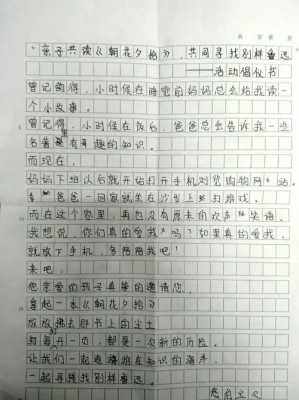 亲子共读《朝花夕拾》，共同寻找别样鲁迅
——活动倡议书
曾记的得，小时候在睡觉前妈妈总会给我读一
个小故事。
曾记得，小时候在饭后，爸爸总会告诉我一些
名著里有趣的知识。
而现在，
妈妈下班以后就开始打开手机浏览购物网站
爸爸一回家就坐在沙发上打游戏。
而在这个家里，再也没有原来的欢声笑语。
我想说，你们真的爱我吗？如果真的爱我，
就放下手机，多陪陪我吧！
来吧，
您亲爱的孩子真挚的邀请您，
拿起一本《朝花夕拾》
拂去书上的尘土
每一页，都是一次新的历险。
让我们一起遨游在知识的海洋
一起寻找别样鲁迅。